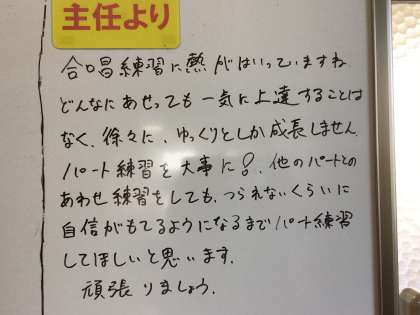 主任より
合唱練習に熱がはいっていますね
どんなにあせっても一気に上達することは
なく、徐々に、ゆっくりとしか成長しません。
パート練習を大事に!、他のパートとの
あわせ練習をしても、つられないくらいに
自信がもてるようになるまでパート練習
してほしいと思います。
頑張りましょう。